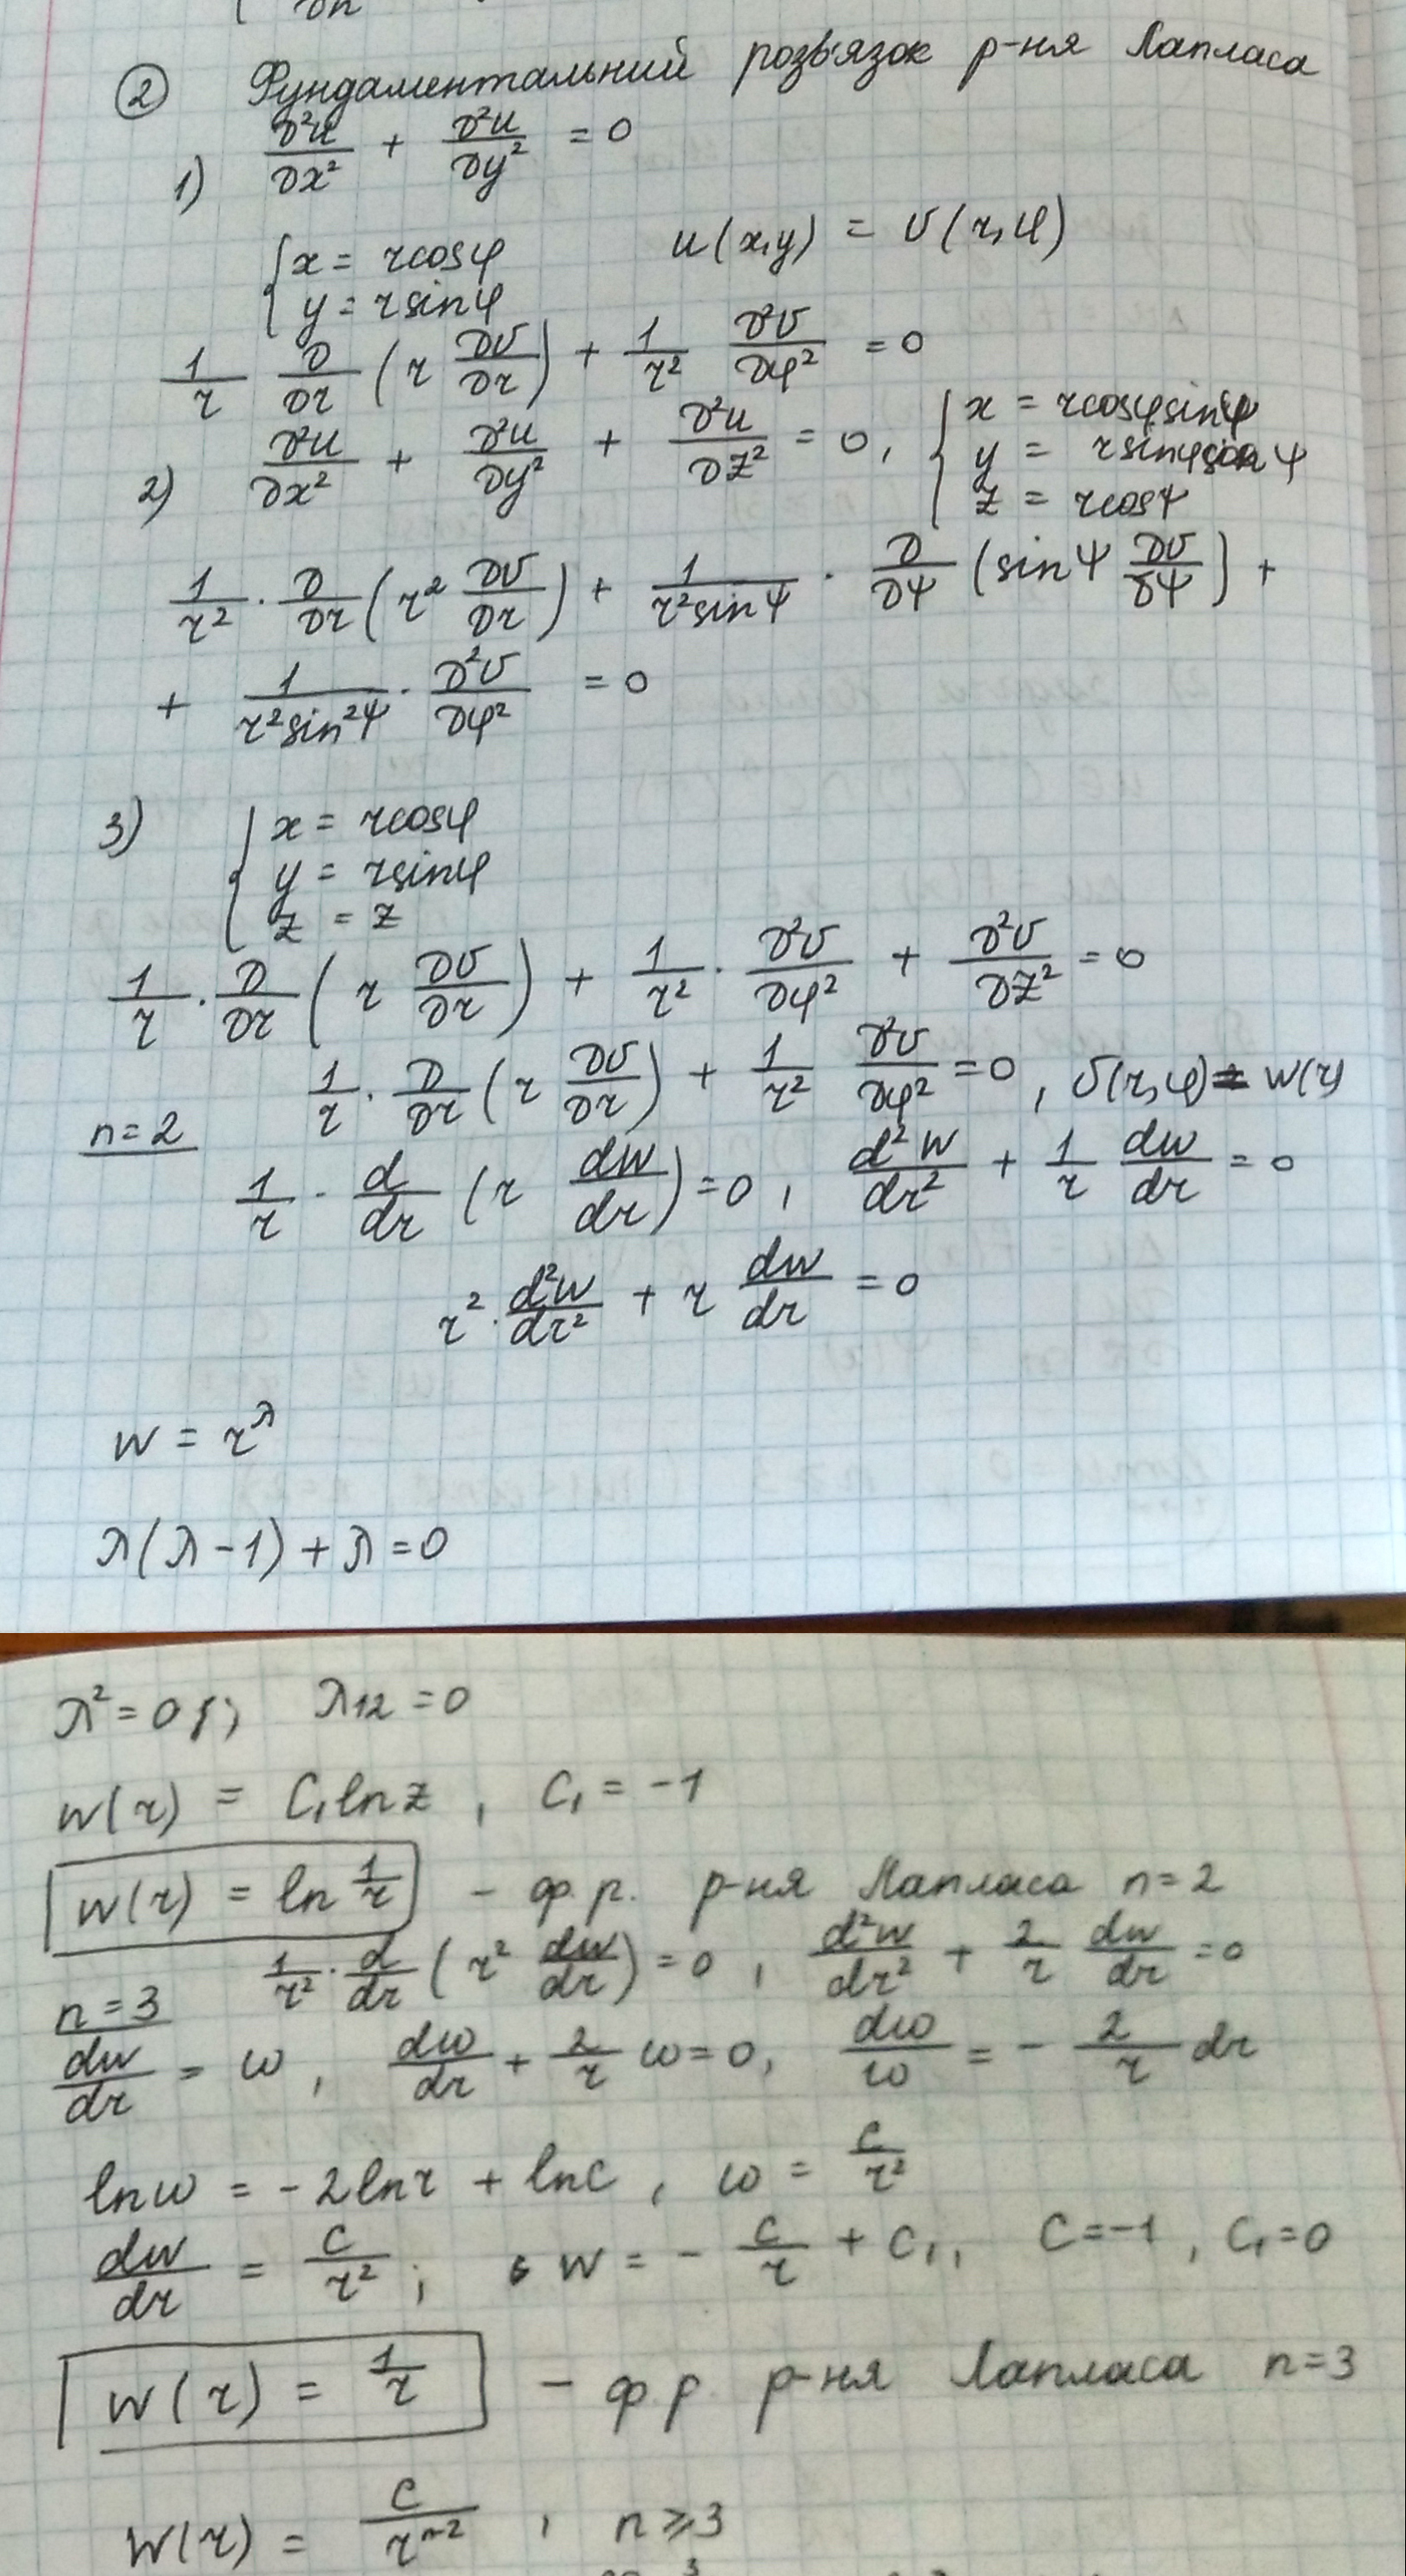 ② Фундаментальний розв'язок р-ня Лапласа
1) ∂²u/∂x² + ∂²u/∂y² = 0
{ x = rcosφ
y = rsinφ u(x,y) = v(r,φ)
1/r ∂/∂r (r ∂v/∂r) + 1/r² ∂²v/∂φ² = 0
2) ∂²u/∂x² + ∂²u/∂y² + ∂²u/∂z² = 0, { x = rcosφsinψ
y = rsinφsinψ
z = rcosψ
1/r² · ∂/∂r (r² ∂v/∂r) + 1/(r²sinψ) · ∂/∂ψ (sinψ ∂v/∂ψ) +
+ 1/(r²sin²ψ) · ∂²v/∂φ² = 0
3) { x = rcosφ
y = rsinφ
z = z
1/r · ∂/∂r (r ∂v/∂r) + 1/r² · ∂²v/∂φ² + ∂²v/∂z² = 0
n=2 1/r · ∂/∂r (r ∂v/∂r) + 1/r² ∂²v/∂φ² = 0, v(r,φ) = w(r)
1/r · d/dr (r dw/dr) = 0, d²w/dr² + 1/r dw/dr = 0
r² · d²w/dr² + r dw/dr = 0
w = r^λ
λ(λ-1) + λ = 0
λ² = 0; λ₁₂ = 0
w(r) = C₁ln z, C₁ = -1
w(r) = ln 1/r - ф.р. р-ня Лапласа n=2
n=3 1/r² · d/dr (r² dw/dr) = 0, d²w/dr² + 2/r dw/dr = 0
dw/dr = ω, dω/dr + 2/r ω = 0, dω/ω = - 2/r dr
lnω = -2lnr + lnC, ω = C/r²
dw/dr = C/r²; w = - C/r + C₁, C = -1, C₁ = 0
w(r) = 1/r - ф.р. р-ня Лапласа n=3
w(r) = C/r^(n-2), n ≥ 3